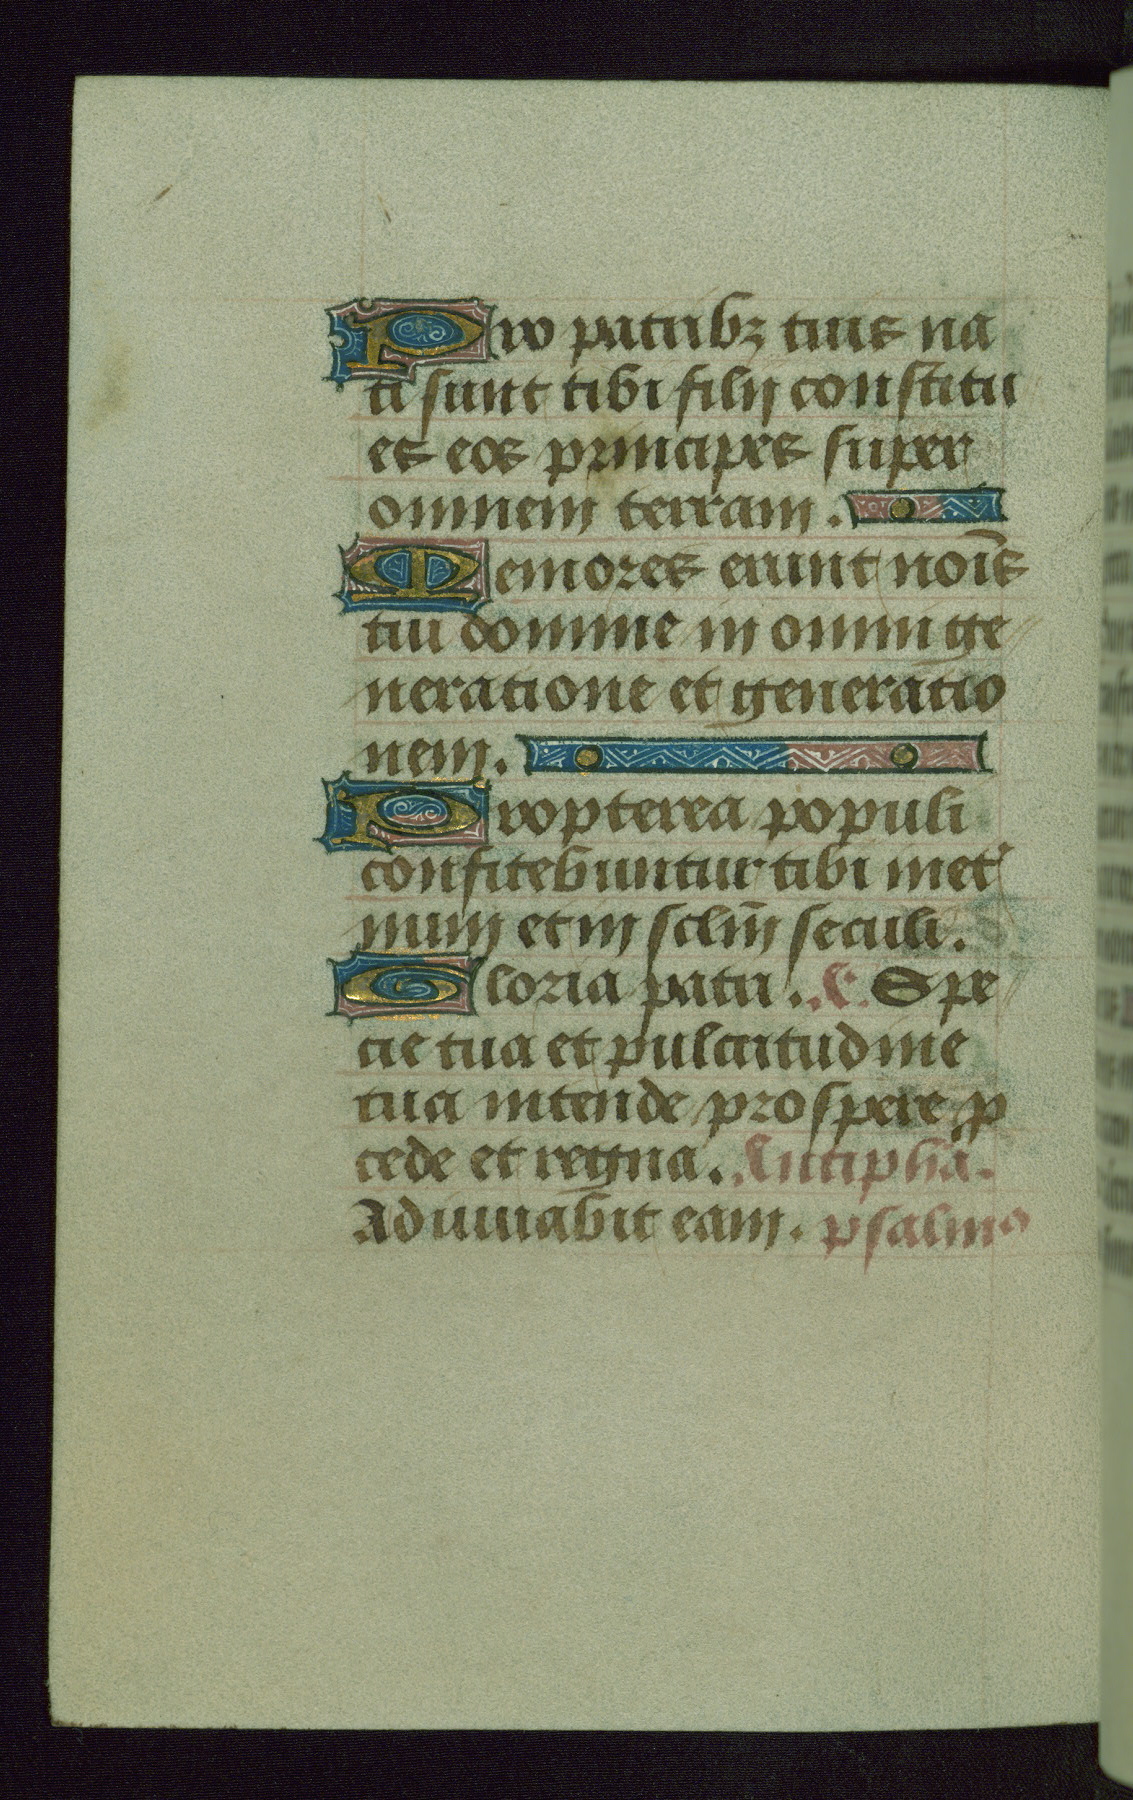 Pro patribꝫ tuis na
ti sunt tibi filij constitu
es eos principes super
omnem terram.
Memores erunt nōis
tui domine in omni ge
neratione et generatio
nem.
Propterea populi
confitebuntur tibi in et̾
num et in sclm̄ seculi.
Gloria patri. A. Spe
cie tua et pulcritudine
tua intende prospere p̱
cede et regna. Antipha.
Adiuuabit eam. psalmo